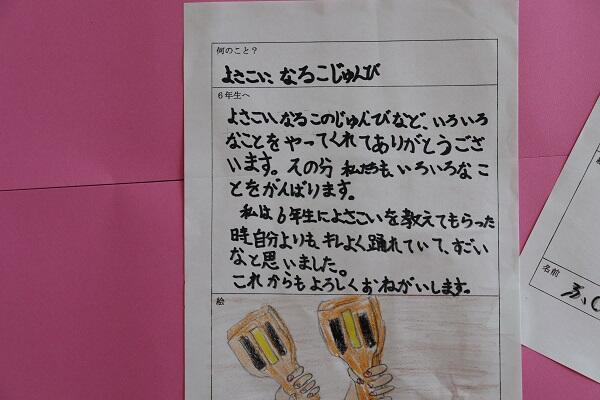 何のこと？
よさこい なるこじゅんび
6年生へ
よさこい、なるこのじゅんびなど、いろいろ
なことをやってくれてありがとうござ
います。その分 私たちも、いろいろなこ
とをがんばります。
私は6年生によさこいを教えてもらった
時、自分よりも、キレよく踊れていて、すごい
なと思いました。
これからもよろしくおねがいします。
絵
名前